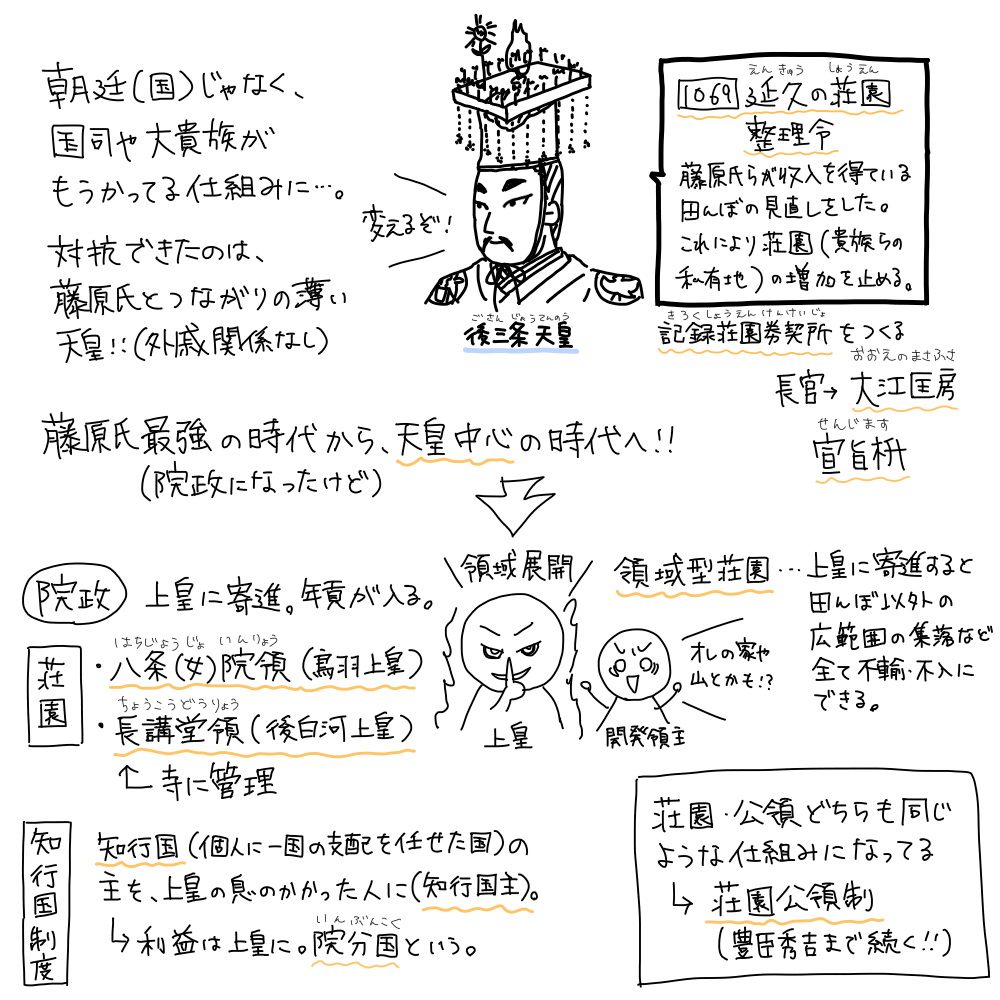 朝廷(国)じゃなく、
国司や大貴族が
もうかってる仕組みに…。
対抗できたのは、
藤原氏とつながりの薄い
天皇!!(外戚関係なし)
変えるぞ!
ごさんじょうてんのう
後三条天皇
えんきゅう しょうえん
1069 延久の荘園
整理令
藤原氏らが収入を得ている
田んぼの見直しをした。
これにより荘園(貴族らの
私有地)の増加を止める。
きろくしょうえんけんけいじょ
記録荘園券契所をつくる
おおえのまさふさ
長官→大江匡房
せんじます
宣旨枡
藤原氏最強の時代から、天皇中心の時代へ!!
(院政になったけど)
院政 上皇に寄進。年貢が入る。
荘園
はちじょうじょいんりょう
・八条(女)院領(鳥羽上皇)
ちょうこうどうりょう
・長講堂領(後白河上皇)
寺に管理
領域展開
上皇
オレの家や
山とかも!?
開発領主
領域型荘園…上皇に寄進すると
田んぼ以外の
広範囲の集落など
全て不輸・不入に
できる。
知行国制度
知行国(個人に一国の支配を任せた国)の
主を、上皇の息のかかった人に(知行国主)。
いんぶんこく
↳利益は上皇に。院分国という。
荘園・公領どちらも同じ
ような仕組みになってる
↳荘園公領制
(豊臣秀吉まで続く!!)